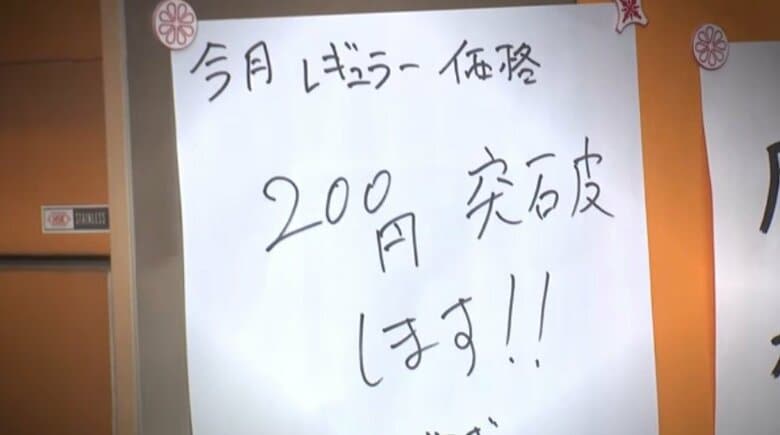 今月 レギュラー 価格
200円 突破
します!!
STAINLESS